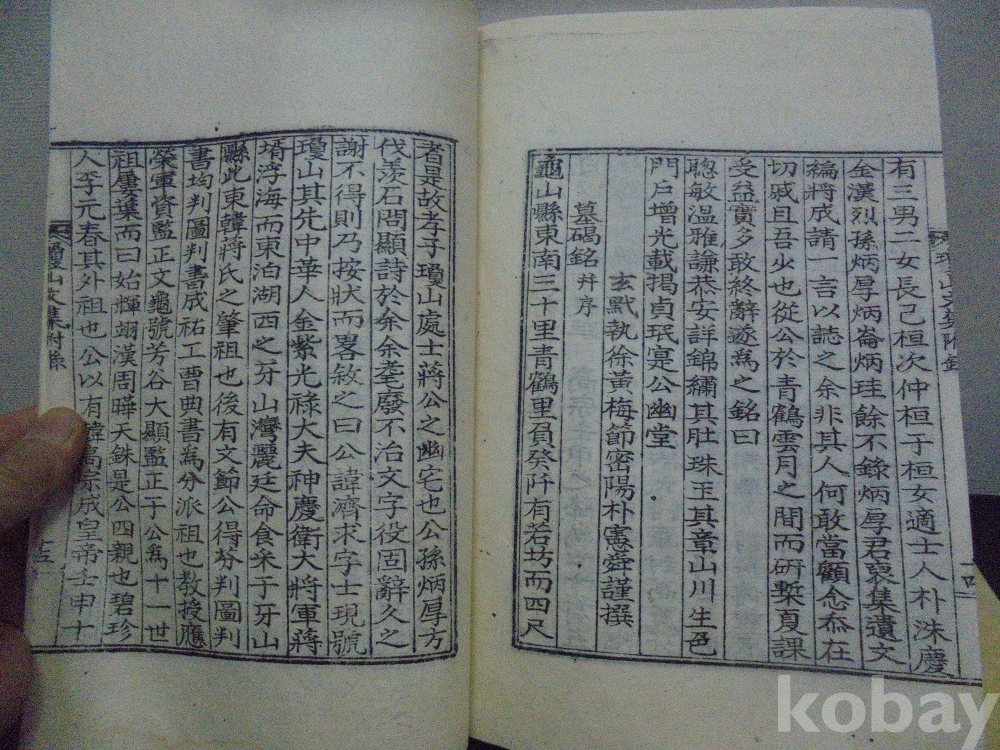 有三男二女長己桓次仲桓于桓女適士人朴洙慶
金漢烈孫炳厚炳崙炳珪餘不錄炳厚君裒集遺文
編將成請一言以誌之余非其人何敢當顧念忝在
切戚且吾少也從公於青鶴雲月之間而研槧夏課
受益實多敢終辭遂為之銘曰
聰敏溫雅謙恭安詳錦繡其肚珠玉其章山川生色
門戶增光載揭貞珉寔公幽堂
玄黓執徐黃梅節密陽朴憲舜謹撰
墓碣銘 幷序
龜山縣東南三十里青鶴里負癸阡有若坊而四尺
者是故孝子瓊山處士蔣公之幽宅也公孫炳厚方
伐羨石問顯詩於余余耄廢不治文字役固辭久之
謝不得則乃按狀而畧敘之曰公諱濟求字士現號
瓊山其先中華人金紫光祿大夫神慶衛大將軍蔣
壻浮海而東泊湖西之牙山灣麗廷命食采于牙山
縣此東韓蔣氏之肇祖也後有文節公得芬判圖判
書均判圖判書成祐工曹典書為分派祖也教授應
榮軍資監正文龜號芳谷大顯監正于公爲十一世
祖屢葉而曰始輝翊漢周曄天銖是公四親也碧珍
人李元春其外祖也公以有韓高宗成皇帝壬申十
瓊山文集附錄
十四
十五
kobay